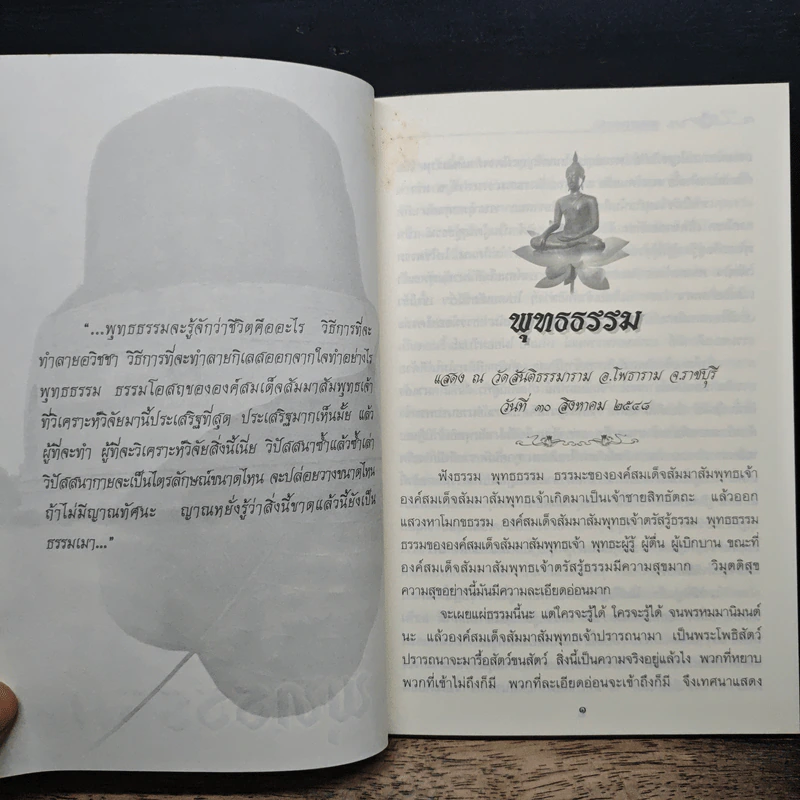 "...พุทธธรรมจะรู้จักว่าชีวิตคืออะไร วิธีการที่จะ
ทำลายอวิชชา วิธีการที่จะทำลายกิเลสออกจากใจทำอย่างไร
พุทธธรรม ธรรมโอสถขององค์สมเด็จสัมมาสัมพุทธเจ้า
ที่วิเคราะห์วิจัยมานี้ประเสริฐที่สุด ประเสริฐมากเห็นมั้ย แล้ว
ผู้ที่จะทำ ผู้ที่จะวิเคราะห์วิจัยสิ่งนี้เนี่ย วิปัสสนาซ้ำแล้วซ้ำเล่า
วิปัสสนากายจะเป็นไตรลักษณ์ขนาดไหน จะปล่อยวางขนาดไหน
ถ้าไม่มีญาณทัศนะ ญาณหยั่งรู้ว่าสิ่งนี้ขาดแล้วนี้ยังเป็น
ธรรมเมา..."
พุทธธรรม
แสดง ณ วัดสันติธรรมาราม อ.โพธาราม จ.ราชบุรี
วันที่ ๓๐ สิงหาคม ๒๕๔๘
ฟังธรรม พุทธธรรม ธรรมะขององค์สมเด็จสัมมาสัมพุทธเจ้า
องค์สมเด็จสัมมาสัมพุทธเจ้าเกิดมาเป็นเจ้าชายสิทธัตถะ แล้วออก
แสวงหาโมกขธรรม องค์สมเด็จสัมมาสัมพุทธเจ้าตรัสรู้ธรรม พุทธธรรม
ธรรมขององค์สมเด็จสัมมาสัมพุทธเจ้า พุทธะผู้รู้ ผู้ตื่น ผู้เบิกบาน ขณะที่
องค์สมเด็จสัมมาสัมพุทธเจ้าตรัสรู้ธรรมมีความสุขมาก วิมุตติสุข
ความสุขอย่างนี้มันมีความละเอียดอ่อนมาก
จะเผยแผ่ธรรมนี้นะ แต่ใครจะรู้ได้ ใครจะรู้ได้ จนพรหมมานิมนต์
นะ แล้วองค์สมเด็จสัมมาสัมพุทธเจ้าปรารถนามา เป็นพระโพธิสัตว์
ปรารถนาจะมารื้อสัตว์ขนสัตว์ สิ่งนี้เป็นความจริงอยู่แล้วไง พวกที่หยาบ
พวกที่เข้าไม่ถึงก็มี พวกที่ละเอียดอ่อนจะเข้าถึงก็มี จึงเทศนาแสดง
๑